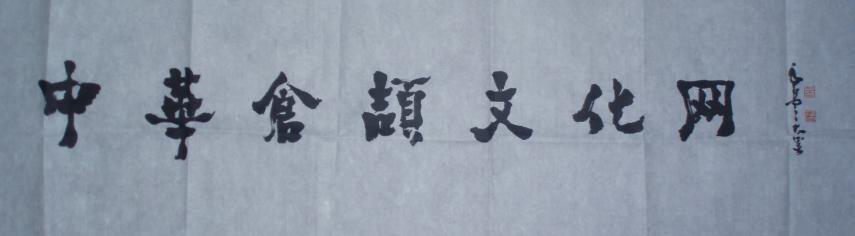 中華倉頡文化网